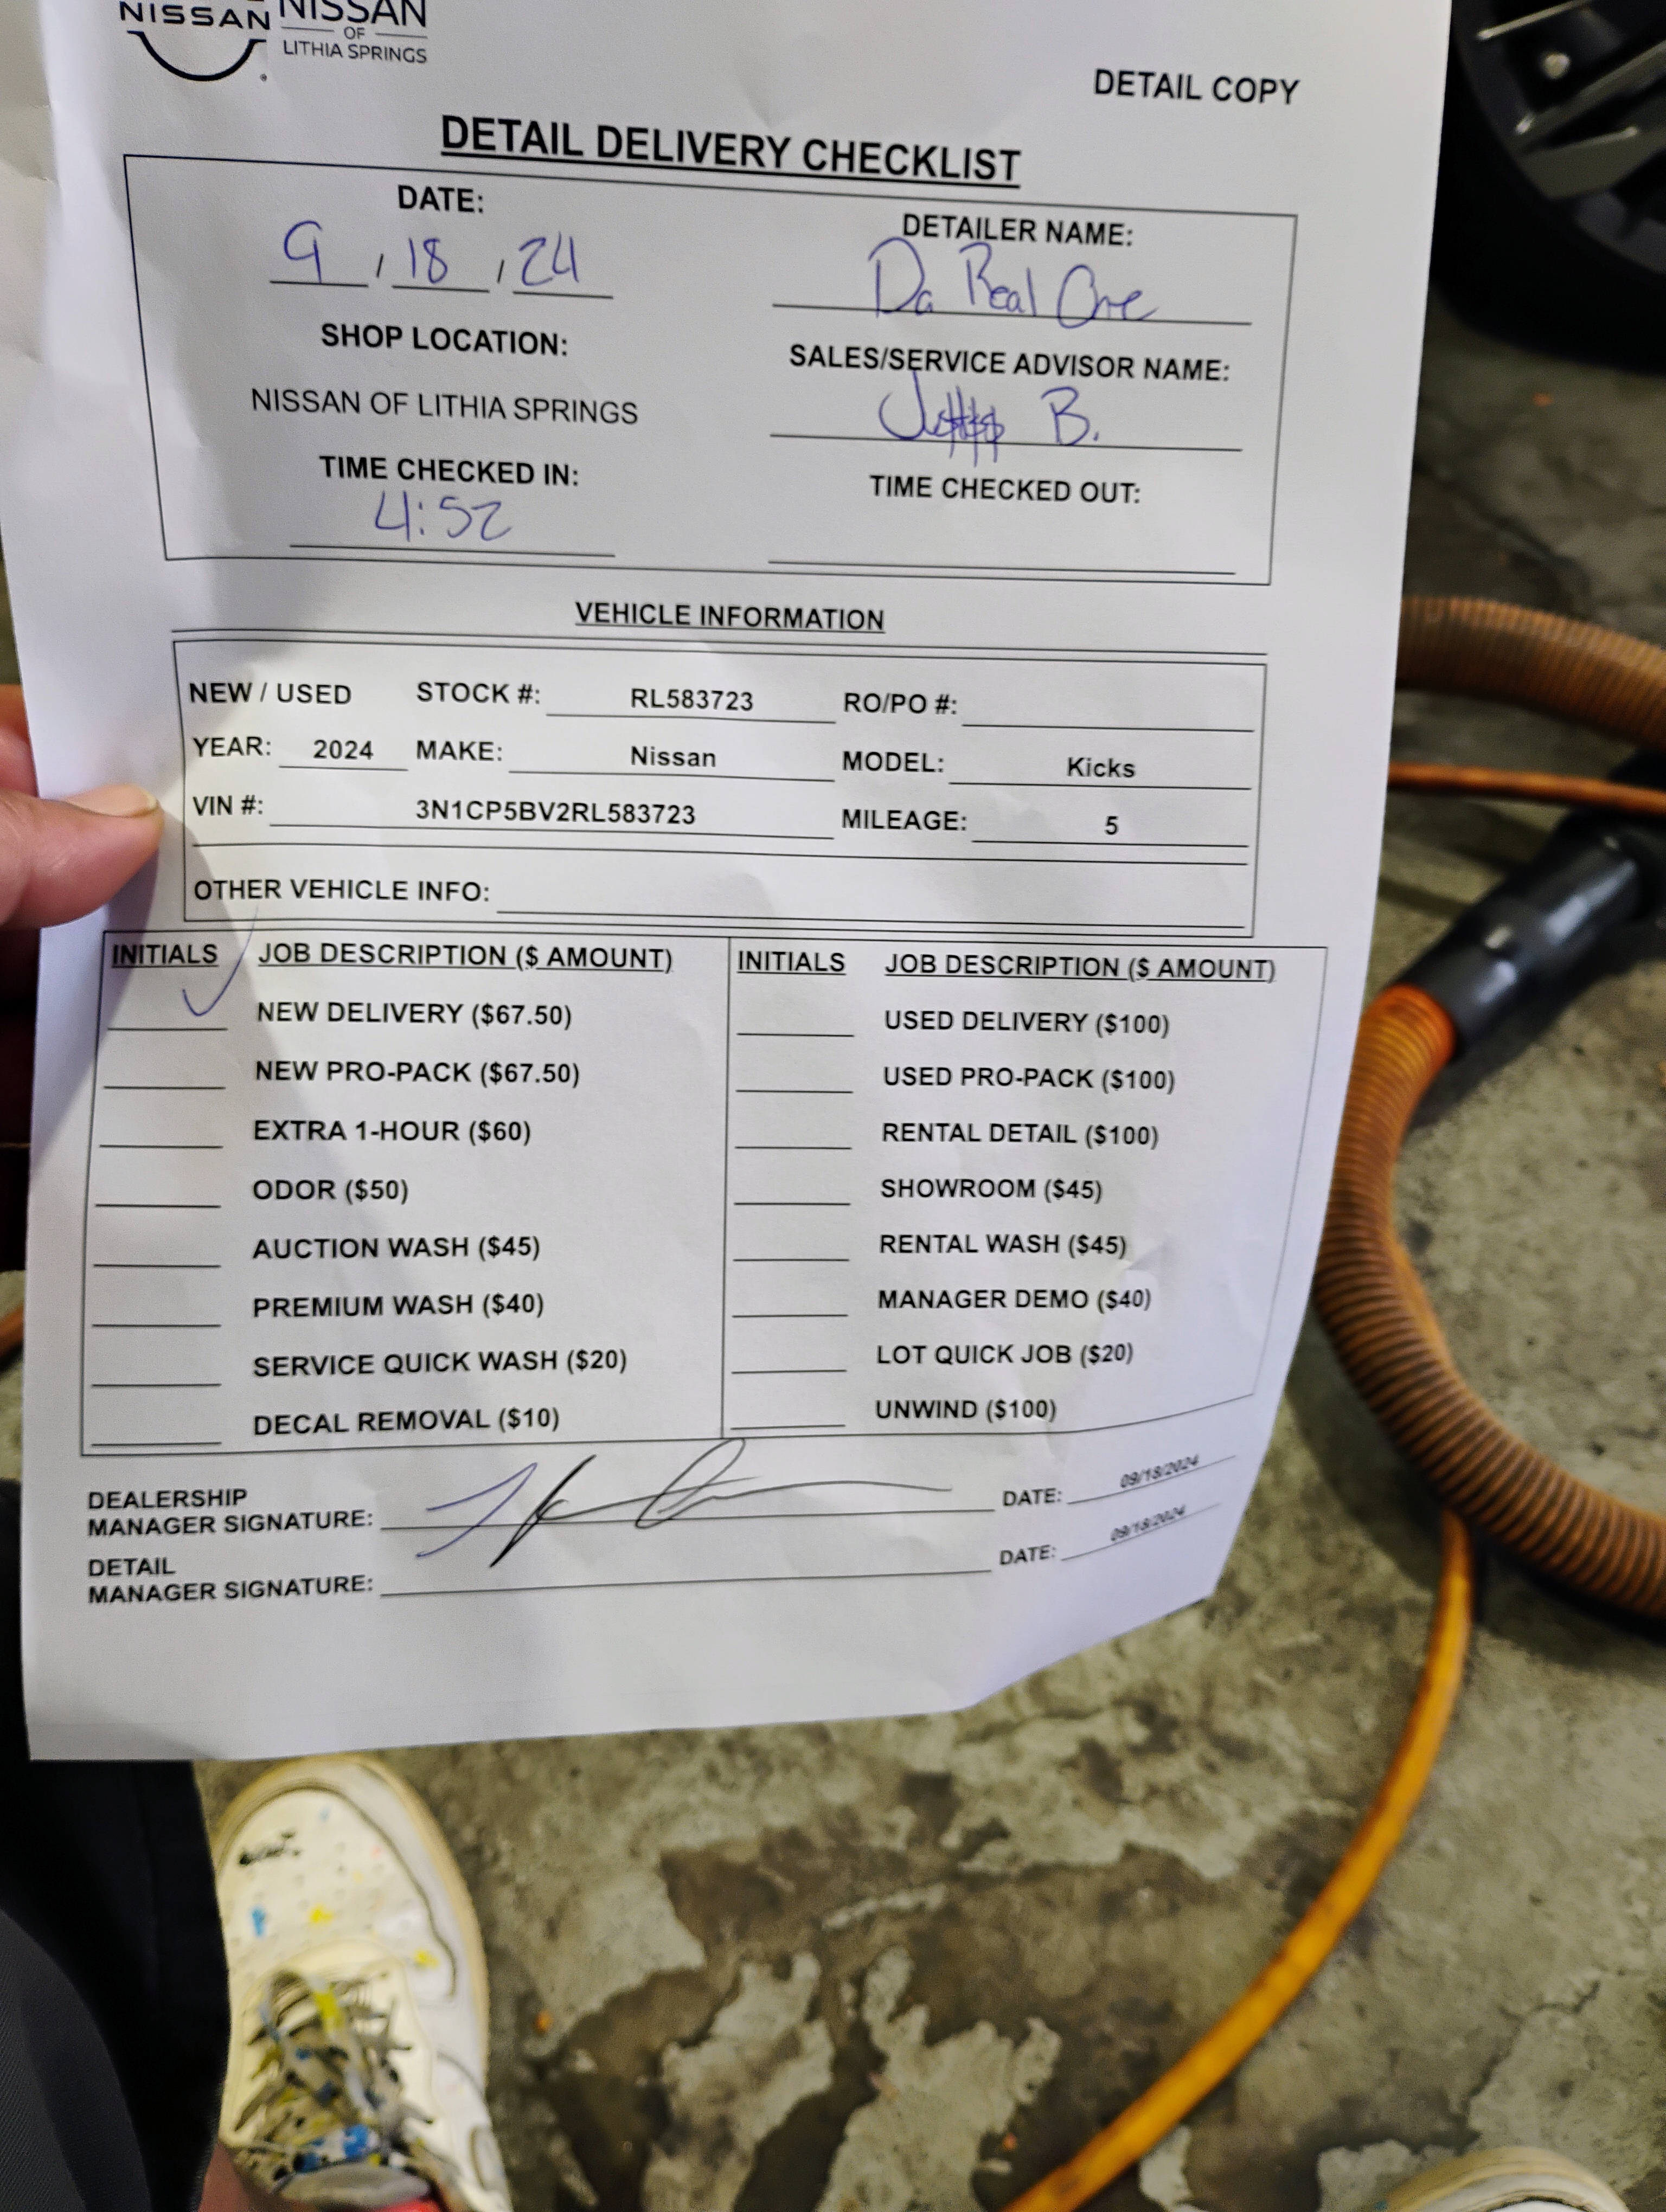 NISSAN NISSAN
OF
LITHIA SPRINGS
DETAIL COPY
DETAIL DELIVERY CHECKLIST
DATE:
9 / 18 / 24
DETAILER NAME:
Da Real One
SHOP LOCATION:
NISSAN OF LITHIA SPRINGS
SALES/SERVICE ADVISOR NAME:
B.
TIME CHECKED IN:
4:52
TIME CHECKED OUT:
VEHICLE INFORMATION
NEW / USED STOCK #: RL583723 RO/PO #:
YEAR: 2024 MAKE: Nissan MODEL: Kicks
VIN #: 3N1CP5BV2RL583723 MILEAGE: 5
OTHER VEHICLE INFO:
INITIALS JOB DESCRIPTION ($ AMOUNT)
NEW DELIVERY ($67.50)
NEW PRO-PACK ($67.50)
EXTRA 1-HOUR ($60)
ODOR ($50)
AUCTION WASH ($45)
PREMIUM WASH ($40)
SERVICE QUICK WASH ($20)
DECAL REMOVAL ($10)
INITIALS JOB DESCRIPTION ($ AMOUNT)
USED DELIVERY ($100)
USED PRO-PACK ($100)
RENTAL DETAIL ($100)
SHOWROOM ($45)
RENTAL WASH ($45)
MANAGER DEMO ($40)
LOT QUICK JOB ($20)
UNWIND ($100)
DEALERSHIP
MANAGER SIGNATURE: DATE: 09/18/2024
DETAIL
MANAGER SIGNATURE: DATE: 09/18/2024